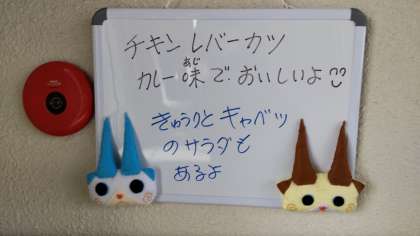 チキンレバーカツ
あじ
カレー味で おいしいよ
きゅうりと キャベツ
のサラダも
あるよ